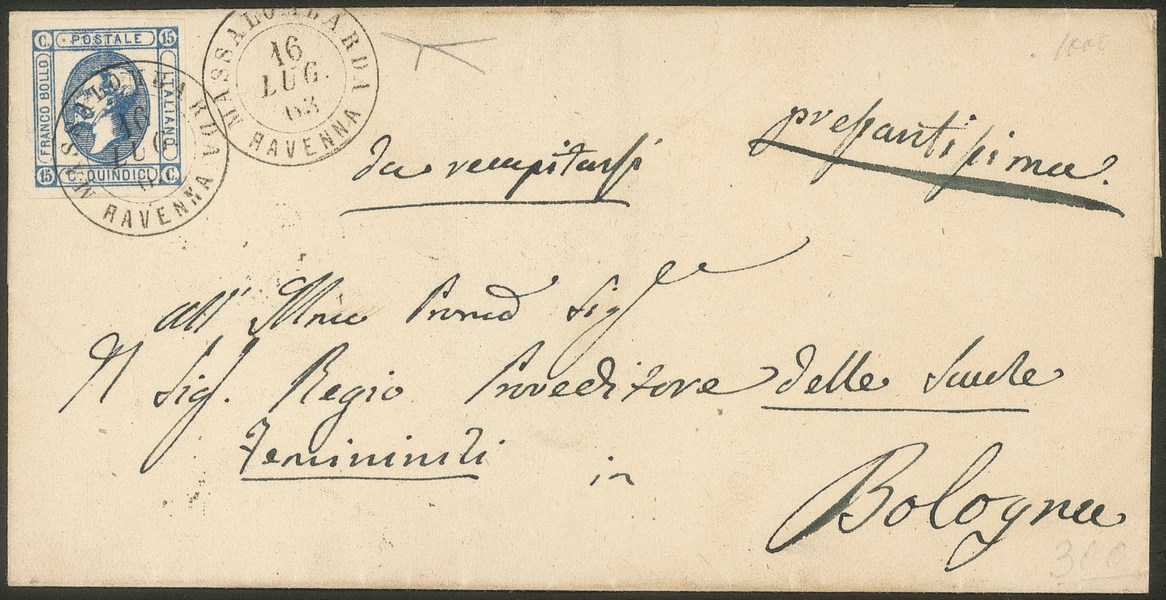 C. POSTALE 15
FRANCO BOLLO
ITALIANO
15 C. QUINDICI C.
MASSALOMBARDA
16
LUG.
63
RAVENNA
MASSALOMBARDA
16
LUG
RAVENNA
da recapitarsi
pressantissima.
all' Illmo Sigr
Al Sigr. Regio Proveditore delle Scuole
Feminili in
Bologna
300